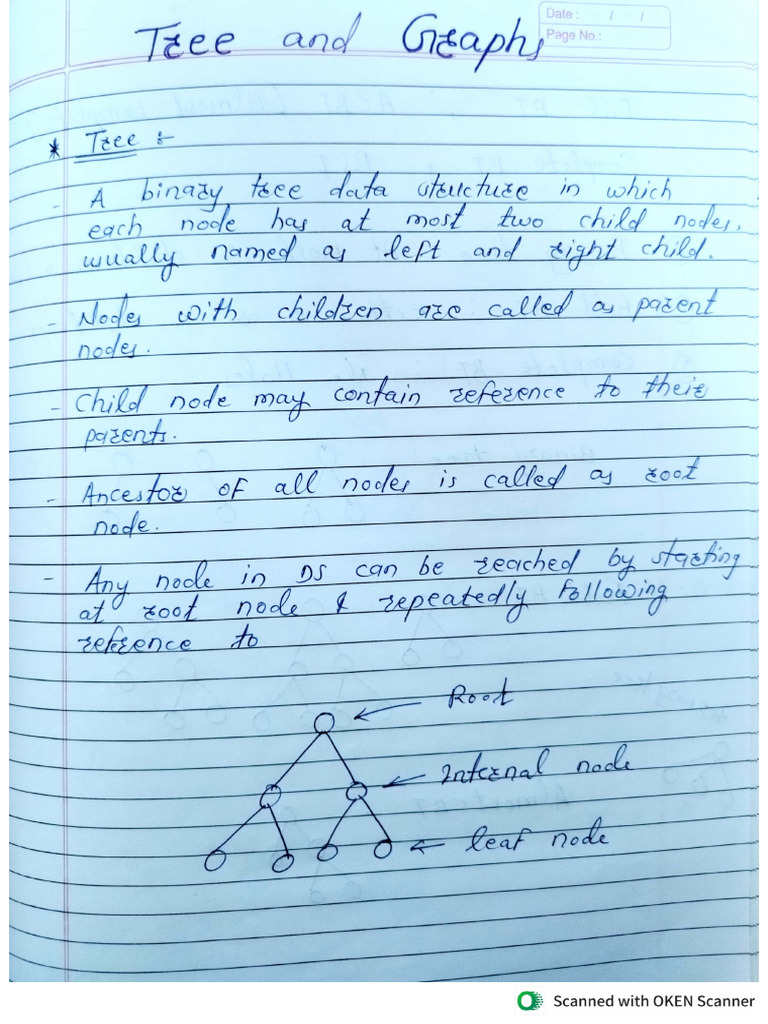 Date : / /
Page No.:
Tree and Graphs
* Tree :-
- A binary tree data structure in which
each node has at most two child nodes,
usually named as left and right child.
- Nodes with children are called as parent
nodes.
- Child node may contain reference to their
parents.
- Ancestor of all nodes is called as root
node.
- Any node in DS can be reached by starting
at root node & repeatedly following
reference to
Root
Internal node
leaf node
Scanned with OKEN Scanner